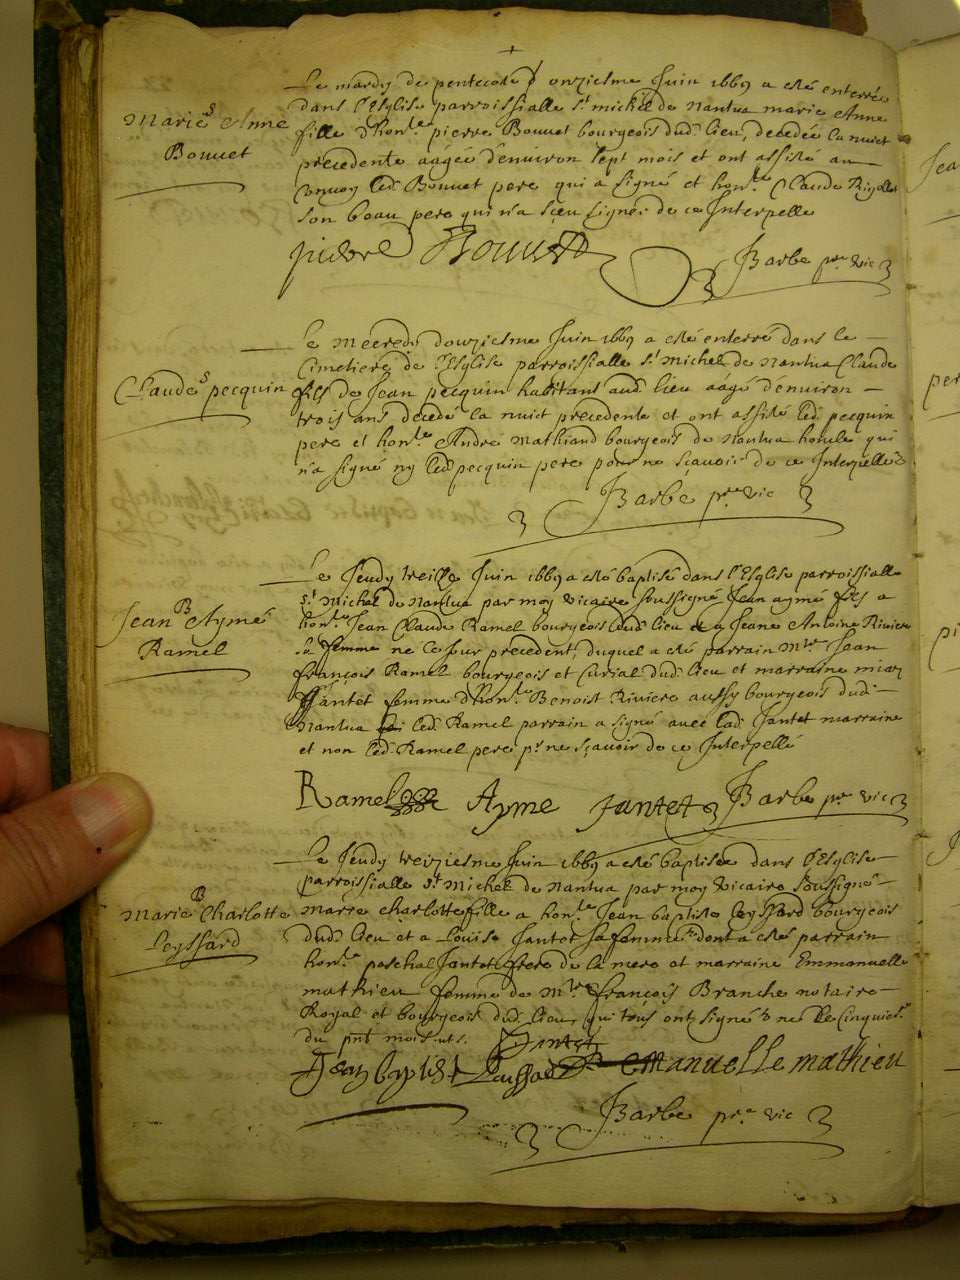 +
Marie S Anne
Bouvet
Le mardy de pentecoste onziesme Juin 1669 a esté enterrée
dans l'Esglise parroissialle st michel de Nantua marie Anne
fille d'honle pierre Bouvet bourgeois dud. lieu, decedée la nuict
precedente aagée d'environ sept mois et ont assisté au
Convoy led. Bouvet pere qui a signé et honle Claude Rigollet
son beau pere qui n'a sçeu signer de ce Interpellé
pierre Bouvet Barbe pre vic
Claude S pecquin
Le Mecredy douziesme Juin 1669 a esté enterré dans le
Cimetiere de l'Esglise parroissialle st Michel de Nantua Claude
fils de Jean pecquin habitant aud. lieu aagé d'environ
trois ans decedé la nuict precedente et ont assisté led. pecquin
pere et honle André Mathiand bourgeois de Nantua qui
n'a signé ny led. pecquin pere pour ne sçavoir de ce Interpellés
Barbe pre vic
Jean B Aymé
Ramel
Le Jeudy treize Juin 1669 a esté baptisé dans l'Esglise parroissialle
st Michel de Nantua par moy vicaire soussigné Jean aymé fils a
honle Jean Claude Ramel bourgeois dud. lieu et a Jeane Antoine Riviere
sa femme ne le jour precedent, duquel a esté parrain Mre Jean
françois Ramel bourgeois et curial dud. lieu et marraine
Jantet femme d'honle Benoist Riviere aussy bourgeois dud.
Nantua led. Ramel parrain a signé avec lad. Jantet marraine
et non led. Ramel pere pr ne sçavoir de ce Interpellé
Ramel Ayme Jantet Barbe pre vic
Marie B Charlotte
Leyssard
Le Jeudy treiziesme Juin 1669 a esté baptisée dans l'Esglise
parroissialle st Michel de Nantua par moy vicaire soussigné
Marie charlotte fille a honle Jean baptiste Leyssard bourgeois
dud. lieu et a Louise Jantet sa femme dont a esté parrain
honle paschal Jantet frere de la mere et marraine Emmanuelle
mathieu femme de Mre françois Branche notaire
Royal et bourgeois dud. lieu, qui tous ont signé nee le cinquies.
du pnt mois uts.
Jantet
Jean baptiste Leyssard Emanuelle mathieu
Barbe pre vic